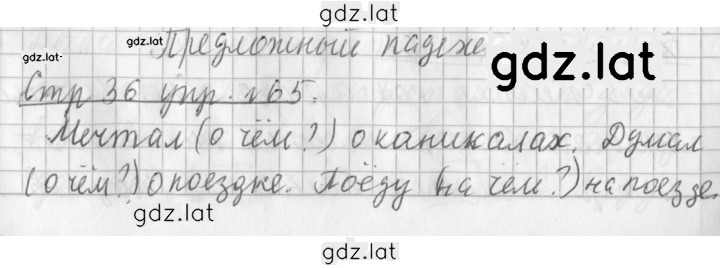 gdz.lat
gdz.lat Предложный падеж
gdz.lat gdz.lat
Стр 36 упр. №65.
Мечтал (о чём?) о каникалах. Думал
(о чём?) о поездке. Поёду (на чём?) на поезде.
gdz.lat
gdz.lat